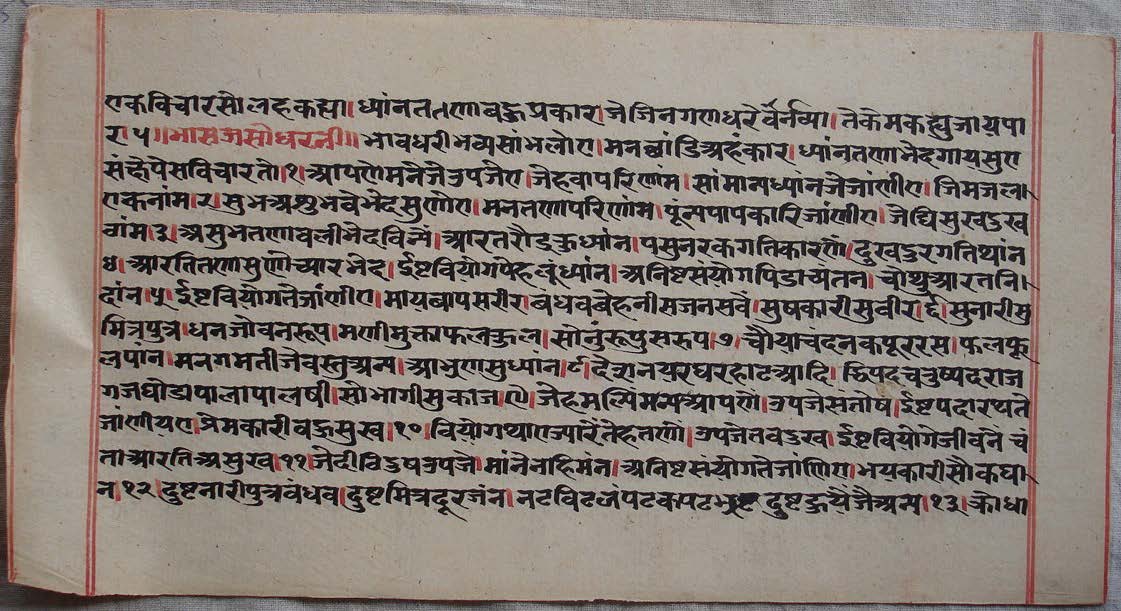 एकविचारसोलहकह्या। ध्यांनततणाबहुप्रकार। जेजिनगणधरेंवर्नव्या। तेकेमकह्युजायपा
र। ५॥ भासजसोधरनी॥ भावधरीभव्यसांभलोए। मनछांडिअहंकार। ध्यांनतणाभेदगायसुए
संक्षेपेसविचारतो। १। आपणेमनेजेउपजेए। जेहवापरिणांम। सांमान्यध्यांनजेजांणीए। जिमजला
एकनांम। २। सुभअशुभबेभेदसुणोए। मनतणापरिणांम। पूंन्यपापकारिजांणीए। जेथिसुखदुख
वांम। ३। असुभतणावलीभेदबिन्यें। आरतरौद्रकुध्यांन। पसुनरकगतिकारणें। दुखदुरगतिथांन
४। आरतितणासुणोच्यारभेद। ईष्टवियोगपेहलूंध्यांन। अनिष्टसंयोगपिडाच्यतन। चोथुआरतनि
दांन। ५। ईष्टवियोगतेजांणीए। मायबापसरीर। बंधवबेहनीसजनसवें। सुषकारीसुवीर। ६। सुनारीसु
मित्रपुत्र। धनजोवनरूप। मणीमुक्ताफलकुल। सोनुंरूपुसरूप। ७। चौयाचंदनकपूररस। फलफू
लपांन। मनगमतीजेवस्तुअन्य। आभुणसुध्यांन। ८। देशनयरघरहाटआदि। द्विपदचतुष्पदराज
गजघोडापालापालषी। सोभागीसुकाज। ९। जेहमल्पिमन्यआपणें। उपजेसंतोष। ईष्टपदारथते
जांणीयए। प्रेमकारीबहुसुख। १०। वियोगथाएज्यारेंतेहतणों। उपजेतवदुख। ईष्टवियोगेजीवनें चं
ताआरतिअसुख। ११। जेदीठिदुषउपजे। मांनेनाहिमंन। अनिष्टसंयोगतेजांणिए। भयकारीसोकघा
न। १२। दुष्टनारीपुत्रबंधव। दुष्टमित्रदूरजंन। नटविटलंपटकपटभ्रष्ट दुष्टहुयेंजेअन्य। १३। क्रोधा